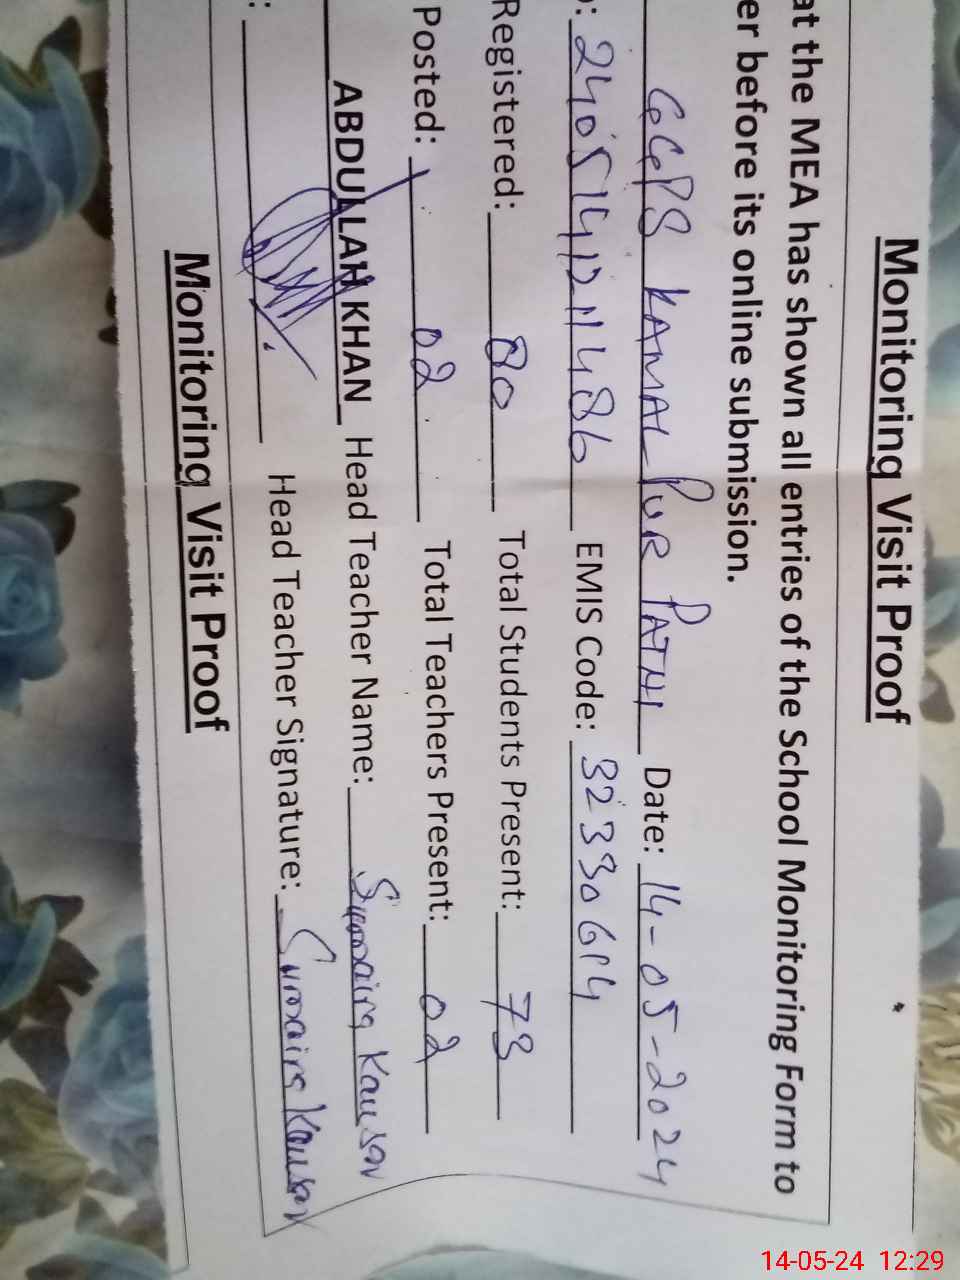 Monitoring Visit Proof
at the MEA has shown all entries of the School Monitoring Form to
er before its online submission.
GGPS KAMAL PUR PATHI Date: 14-05-2024
: 240514121486 EMIS Code: 32330614
Registered: 80 Total Students Present: 73
Posted: 02 Total Teachers Present: 02
ABDULLAH KHAN Head Teacher Name: Sumaira Kausar
: Head Teacher Signature: Sumaira Kausar
Monitoring Visit Proof
14-05-24 12:29